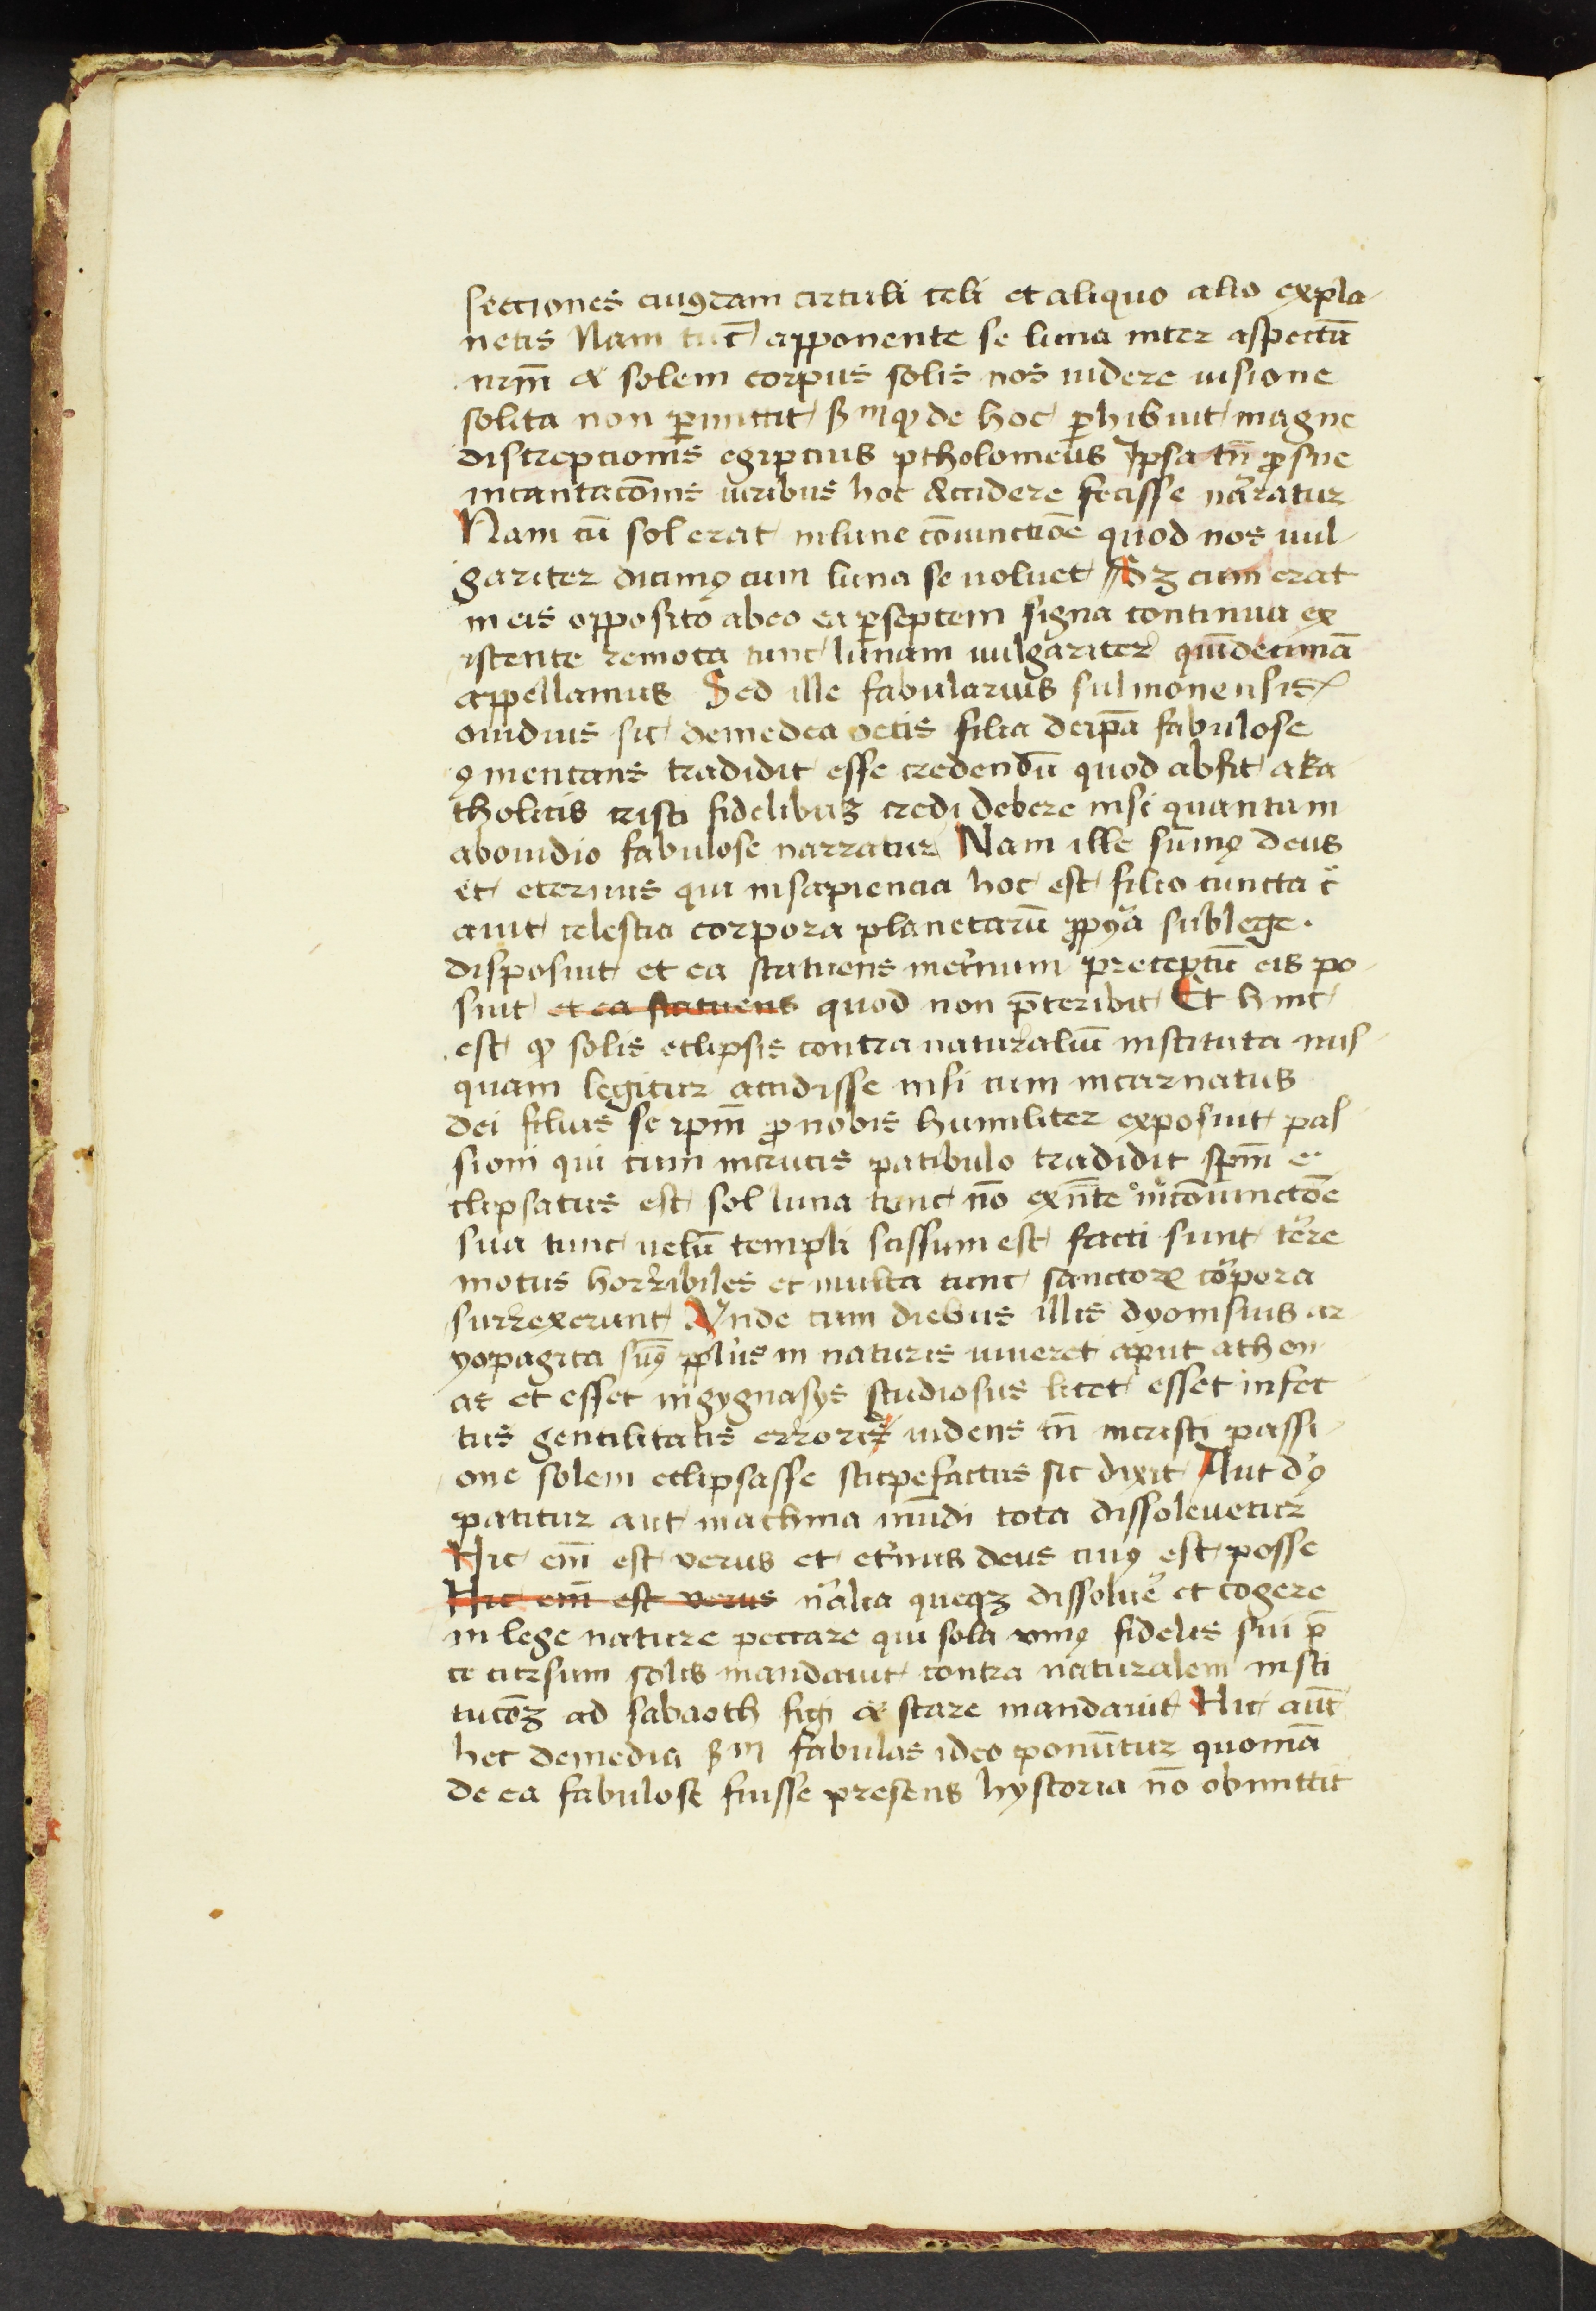 secciones cuiusdam circuli celi et aliquo alio expla
netis Nam tūc apponente se luna inter aspectū
nrm̄ & solem corpus solis nos uidere uisione
solita non ꝑmittit ẞm qꝫ de hoc ꝑhibuit magne
discrepcionis egipcius ptholomeus Ipsa tn̄ ꝓ sue
incantacōnis uiribus hoc accidere fecisse naͬratur
Nam cū sol erat in lune cōiunctiōe quod nos uul
gariter dicimꝰ cum luna se voluet Sꝫ cum erat
in eis opposito ab eo ea ꝑ septem signa continua ex
istente remota tunc lunam uulgariter quīdecimā
appellamus Sed ille fabularius sulmonensis
ouidius sic de medea oetis filia de ip̄a fabulose
ꝯmentans tradidit esse credendū quod absit a ka
tholicis cristi fidelibuꝫ credi debere nisi quantum
ab ouidio fabulose narratur Nam ille sum̄ꝰ deus
et eternus qui in sapiencia hoc est filio cuncta c͛
auit celestia corpora planetarū ꝓpͥa sub lege.
disposuit et ea statuens in et͛num preceptū eis po
suit et ea statuens quod non p̄teribit Et hinc
est ꝙ solis eclipsis contra naturaliū instituta nus
quam legitur accidisse nisi cum incarnatus
dei filius se ip̄m ꝓ nobis humiliter exposuit pas
sioni qui cum in crucis patibulo tradidit sp̄m e
clipsatus est sol luna tunc nō exn̄te in cōiunctōe
sua tunc uelū templi scissum est facti sunt t͛re
motus horribiles et multa tunc sanctorꝝ corpora
surrexerunt Vnde cum diebus illis dyonisius ar
yopagita sūꝰ in naturis uiueret aput athen
as et esset in gygnasys studiosus licet esset infec
tus gentilitatis erroris uidens tn̄ in cristi passi
one solem eclipsasse stupefactus sic dixit Aut dꝰ
patitur aut machina mūdi tota dissoleuetur
Hic em̄ est verus et et͛nus deus cuiꝰ est posse
Hic em̄ est verus naͬlia queqꝫ dissolue͛ et cogere
in lege nature peccare qui sola vniꝰ fidelis sui p̄
ce cursum solis mandauit contra naturalem insti
tucōꝫ ad sabaoth figi & stare mandauit Hic aūt
hec de media ẞm fabulas ideo ponuntur quoniā
de ea fabulose fuisse presens hystoria nō obmittit